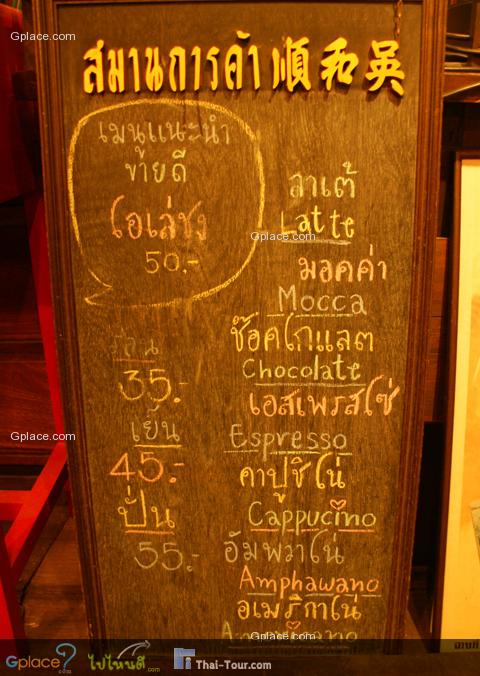 Gplace.com
Gplace.com
สมานการค้า 順和吳
เมนูแนะนำ
ขายดี
โอเลี้ยง
50.-
ร้อน
35.-
เย็น
45.-
ปั่น
55.-
ลาเต้
Latte
Gplace.com
มอคค่า
Mocca
ช๊อคโกแลต
Chocolate
เอสเพรสโซ่
Espresso
Gplace.com
คาปูชิโน่
Cappucino
Gplace.com
อัมพวาโน่
Amphawano
อเมริกาโน่
Gplace.com
Gplace?
ไปไหนดี.com
Thai-Tour.com